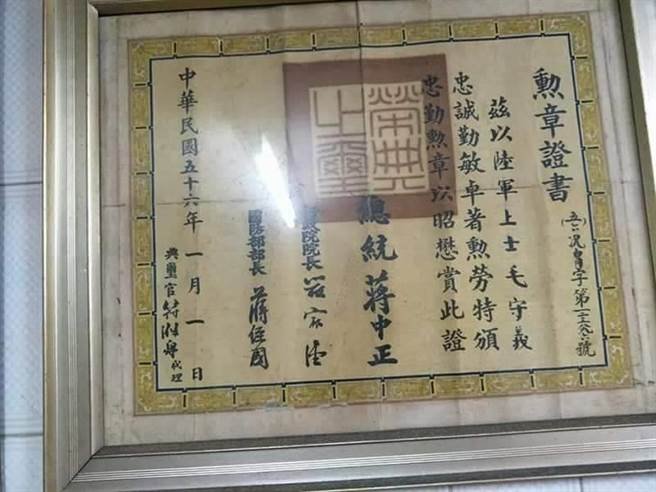 勲章證書
茲以陸軍上士毛守義
忠誠勤敏卓著勲勞特頒
忠勤勲章以昭懋賞此證
榮典之璽
總統 蔣中正
行政院院長 嚴家淦
國防部部長 蔣經國
中華民國五十六年一月一日
典璽官 代理